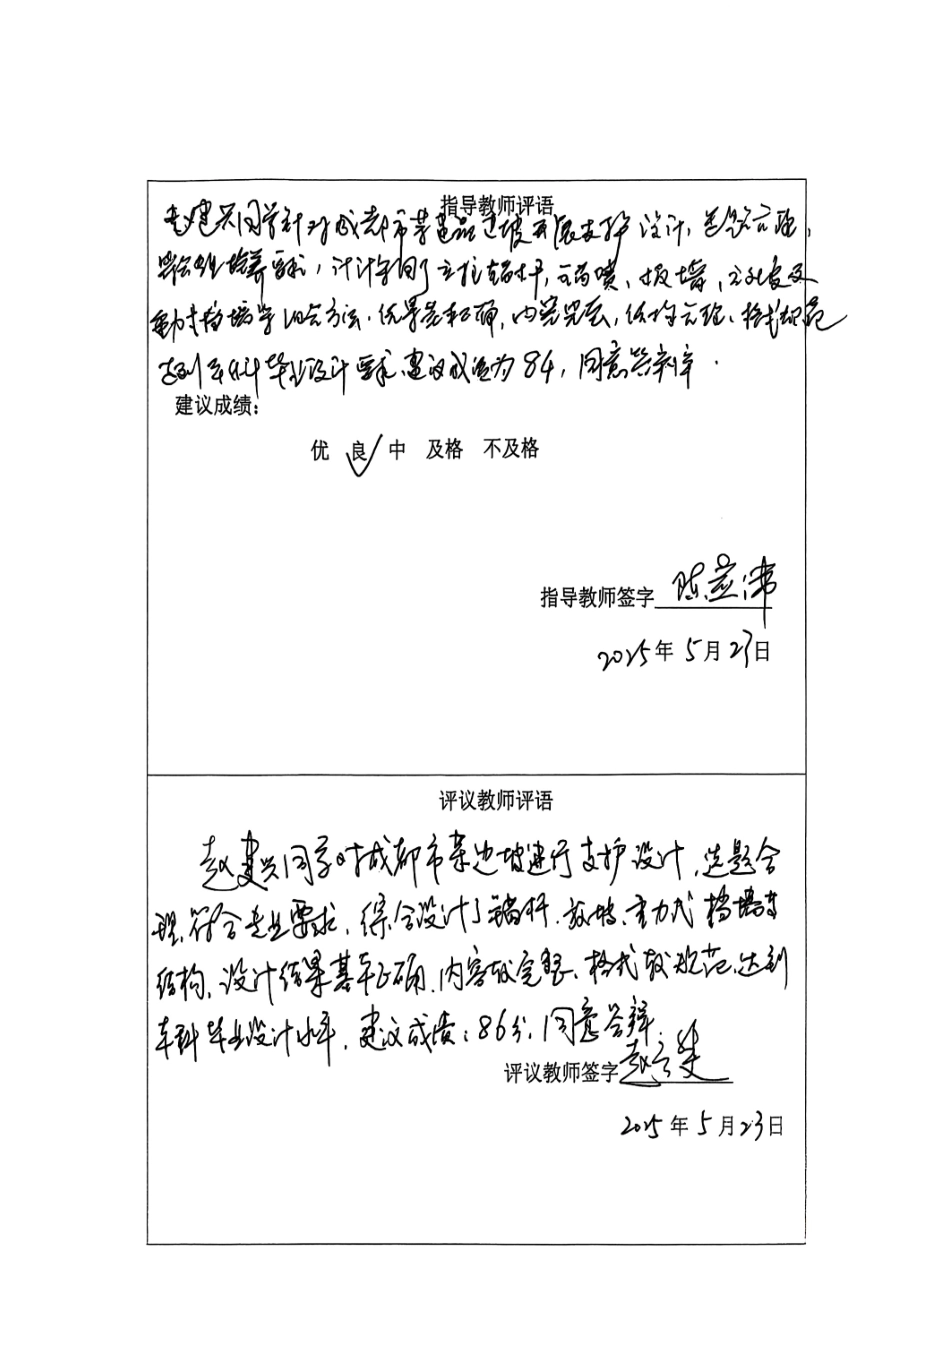 指导教师评语
赵建兴同学针对成都市某建筑边坡开展支护设计,选题合理,
培养要求,设计
挡墙等 方法。结果基本正确,内容完整,结构合理、格式规范
达到本科毕业设计要求,建议成绩为84,同意答辩。
建议成绩:
优 良 中 及格 不及格
指导教师签字
2025年5月23日
评议教师评语
赵建兴同学对成都市某边坡进行支护设计,选题合
理,符合专业要求,综合设计了锚杆、放坡、重力式挡墙等
结构,设计结果基本正确,内容较完整、格式较规范,达到
本科毕业设计水平,建议成绩:86分,同意答辩。
评议教师签字
2025年5月23日